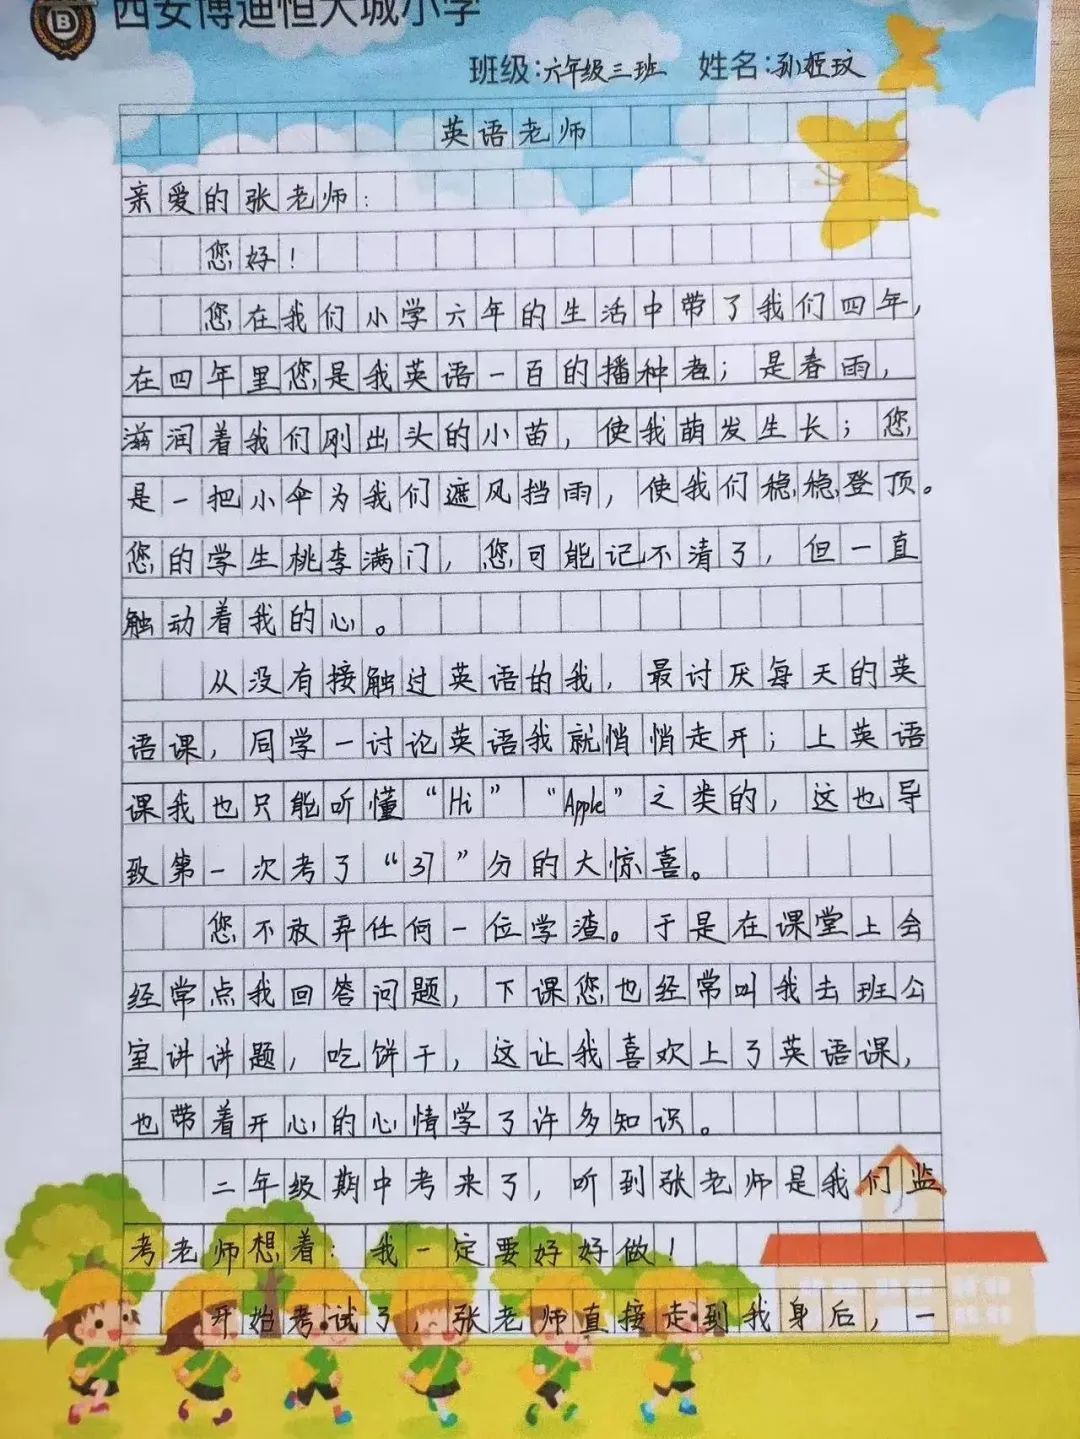 西安博迪恒大城小学
班级:六年级三班 姓名:孙姃玟
英语老师
亲爱的张老师:
您好!
您在我们小学六年的生活中带了我们四年,
在四年里您是我英语一百的播种者;是春雨,
滋润着我们刚出头的小苗,使我萌发生长;您
是一把小伞为我们遮风挡雨,使我们稳稳登顶。
您的学生桃李满门,您可能记不清了,但一直
触动着我的心。
从没有接触过英语的我,最讨厌每天的英
语课,同学一讨论英语我就悄悄走开;上英语
课我也只能听懂“Hi”“Apple”之类的,这也导
致第一次考了“37”分的大惊喜。
您不放弃任何一位学渣。于是在课堂上会
经常点我回答问题,下课您也经常叫我去班公
室讲讲题,吃饼干,这让我喜欢上了英语课,
也带着开心的心情学了许多知识。
二年级期中考来了,听到张老师是我们监
考老师想着:我一定要好好做!
开始考试了,张老师直接走到我身后,一